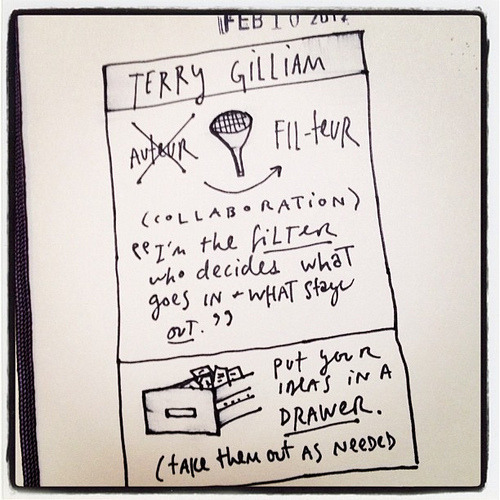 FEB 10 2012
TERRY GILLIAM
AUTEUR
FIL-TEUR
(COLLABORATION)
"I'm the FILTER
who decides what
goes IN + WHAT stays
OUT."
PUT YOUR
IDEAS IN A
DRAWER.
(TAKE THEM OUT AS NEEDED